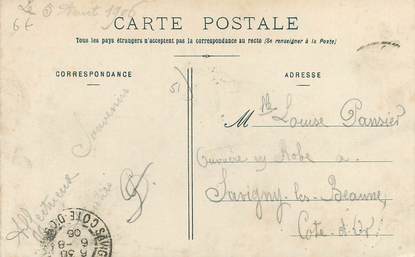 Le 5 Août 1906
6f
CARTE POSTALE
Tous les pays étrangers n'acceptent pas la correspondance au recto (Se renseigner à la Poste)
CORRESPONDANCE
ADRESSE
51
Souvenirs
Affectueux
Mlle Louise Pansier
Ouvrière en Robe a
Savigny-les-Beaune
Cote-d'Or
CÔTE-D'OR
6 30
6 -8
06